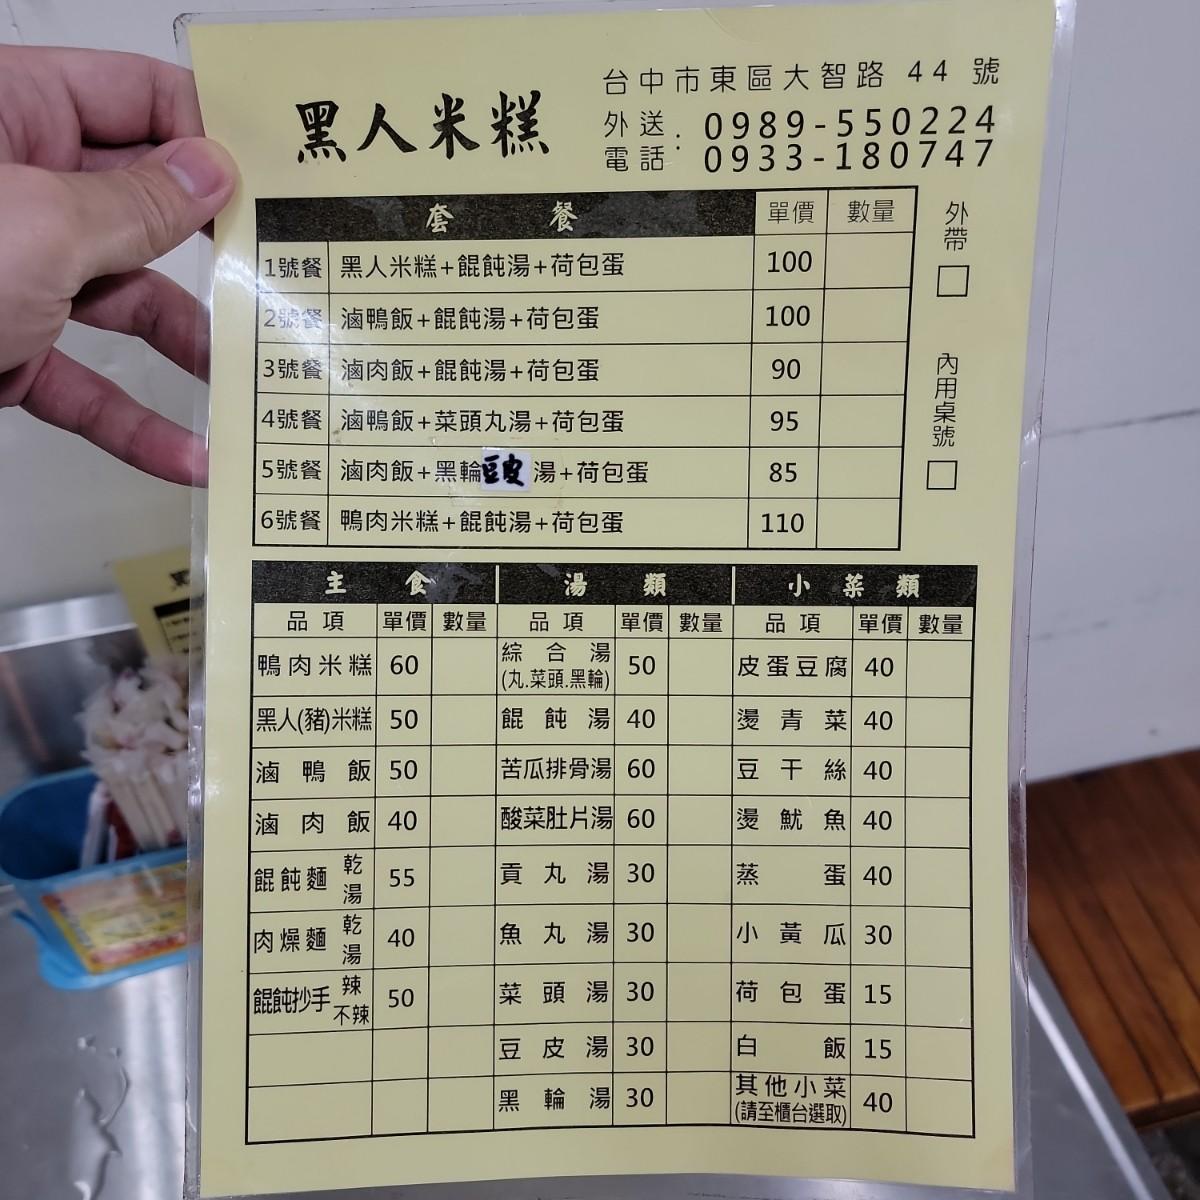 黑人米糕
台中市東區大智路 44 號
外送電話: 0989-550224
0933-180747
套餐 單價 數量
1號餐 黑人米糕+餛飩湯+荷包蛋 100
2號餐 滷鴨飯+餛飩湯+荷包蛋 100
3號餐 滷肉飯+餛飩湯+荷包蛋 90
4號餐 滷鴨飯+菜頭丸湯+荷包蛋 95
5號餐 滷肉飯+黑輪豆皮湯+荷包蛋 85
6號餐 鴨肉米糕+餛飩湯+荷包蛋 110
外帶 □
內用桌號 □
主食 湯類 小菜類
品項 單價 數量 品項 單價 數量 品項 單價 數量
鴨肉米糕 60 綜合湯(丸.菜頭.黑輪) 50 皮蛋豆腐 40
黑人(豬)米糕 50 餛飩湯 40 燙青菜 40
滷鴨飯 50 苦瓜排骨湯 60 豆干絲 40
滷肉飯 40 酸菜肚片湯 60 燙魷魚 40
餛飩麵 乾 湯 55 貢丸湯 30 蒸蛋 40
肉燥麵 乾 湯 40 魚丸湯 30 小黃瓜 30
餛飩抄手 辣 不辣 50 菜頭湯 30 荷包蛋 15
豆皮湯 30 白飯 15
黑輪湯 30 其他小菜(請至櫃台選取) 40